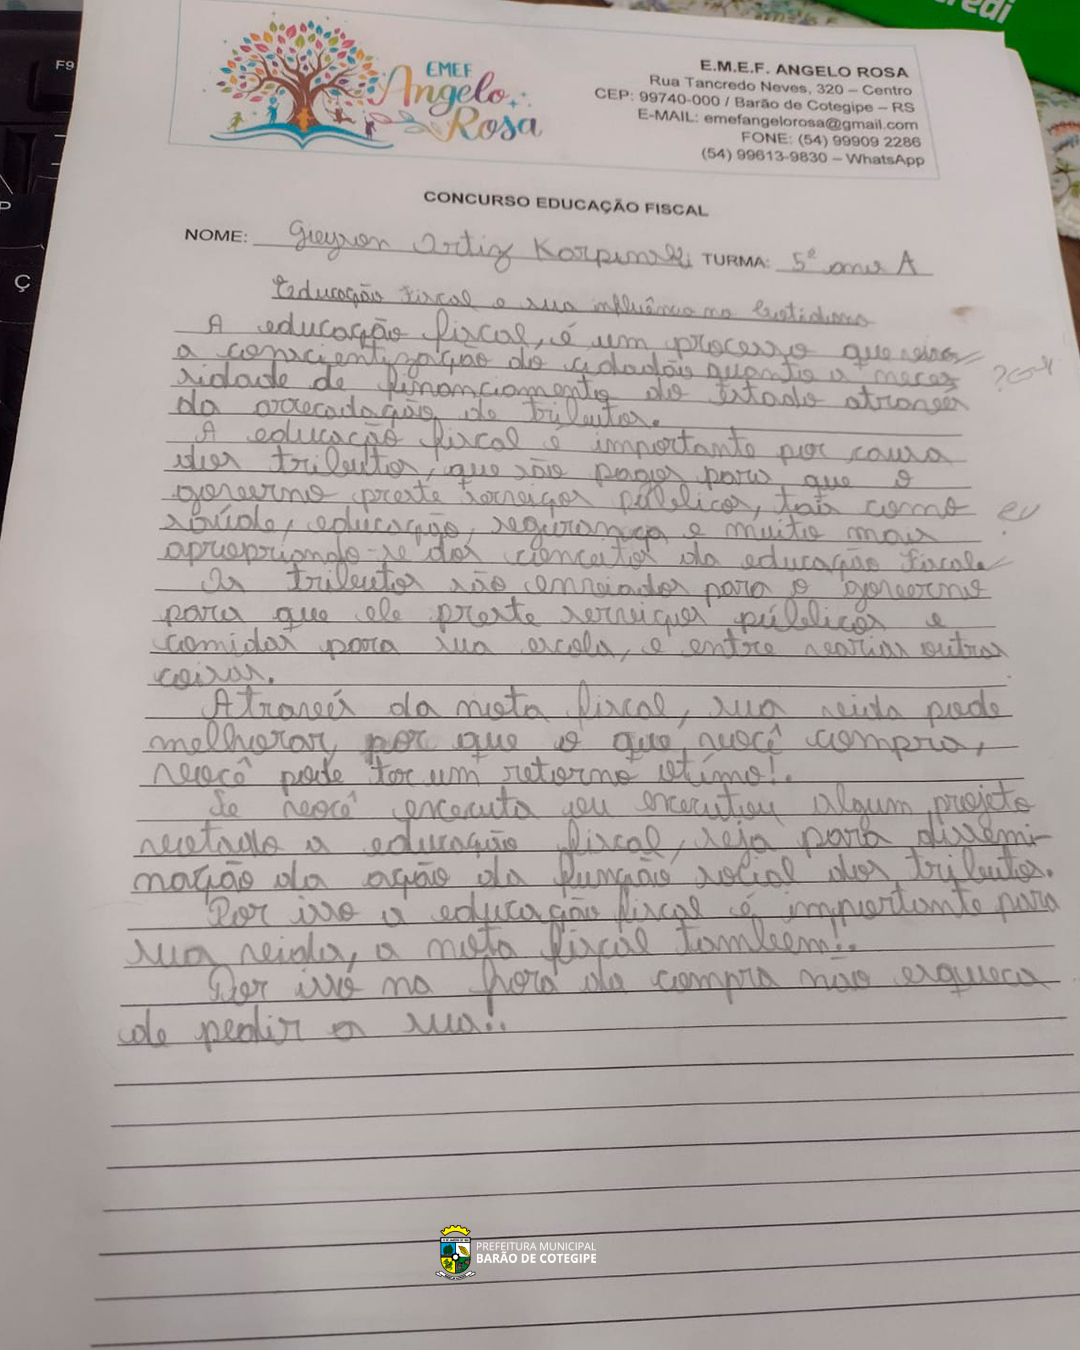 redi
F9
P
Ç
EMEF
Angelo
Rosa
E.M.E.F. ANGELO ROSA
Rua Tancredo Neves, 320 – Centro
CEP: 99740-000 / Barão de Cotegipe – RS
E-MAIL: emefangelorosa@gmail.com
FONE: (54) 99909 2286
(54) 99613-9830 – WhatsApp
CONCURSO EDUCAÇÃO FISCAL
NOME: Ortiz TURMA: 5º ano A
Educação Fiscal e sua influência no Cotidiano
A educação fiscal, é um processo que visa
a conscientização do cidadão quanto a neces
sidade de financiamento do Estado através
da arrecadação de tributos.
A educação fiscal é importante por causa
dos tributos, que são pagos para que o
governo preste serviços públicos, tais como
saúde, educação, segurança e muito mais
apropriando-se dos conceitos da educação fiscal.
Os tributos são enviados para o governo
para que ele preste serviços públicos e
comidas para sua escola, e entre várias outras
coisas.
Através da nota fiscal, sua vida pode
melhorar, por que o que você compra,
você pode ter um retorno ótimo!.
Se você executa ou executou algum projeto
voltado a educação fiscal, seja para dissemi-
nação da ação da função social dos tributos.
Por isso a educação fiscal é importante para
sua vida, a nota fiscal também!.
Por isso na hora da compra não esqueça
de pedir a sua!.
PREFEITURA MUNICIPAL
BARÃO DE COTEGIPE